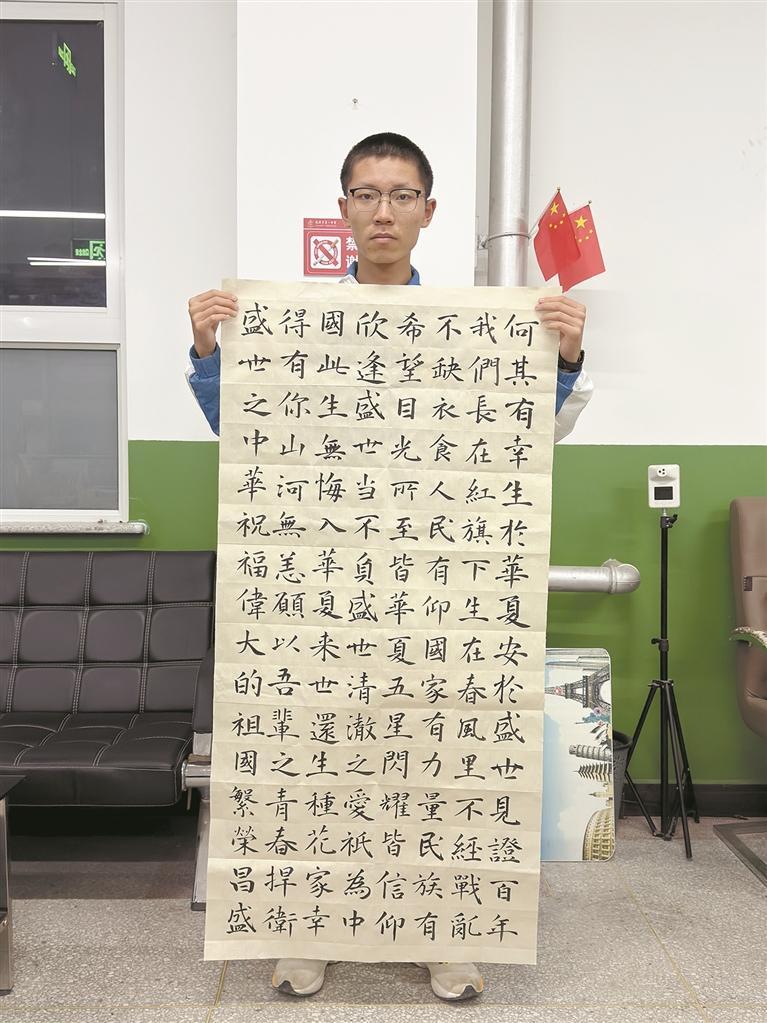 何其有幸生於華夏安於盛世見證百年
我們長在紅旗下生在春風里不經戰亂
不缺衣食人民有仰國家有力量民族有
希望目光所至皆華夏五星閃耀皆信仰
欣逢盛世当不負盛世清澈之愛祇為中
國此生無悔入華夏来世還生種花家幸
得有你山河無恙願以吾輩之青春捍衛
盛世之中華祝福偉大的祖國繁榮昌盛
禁
谢